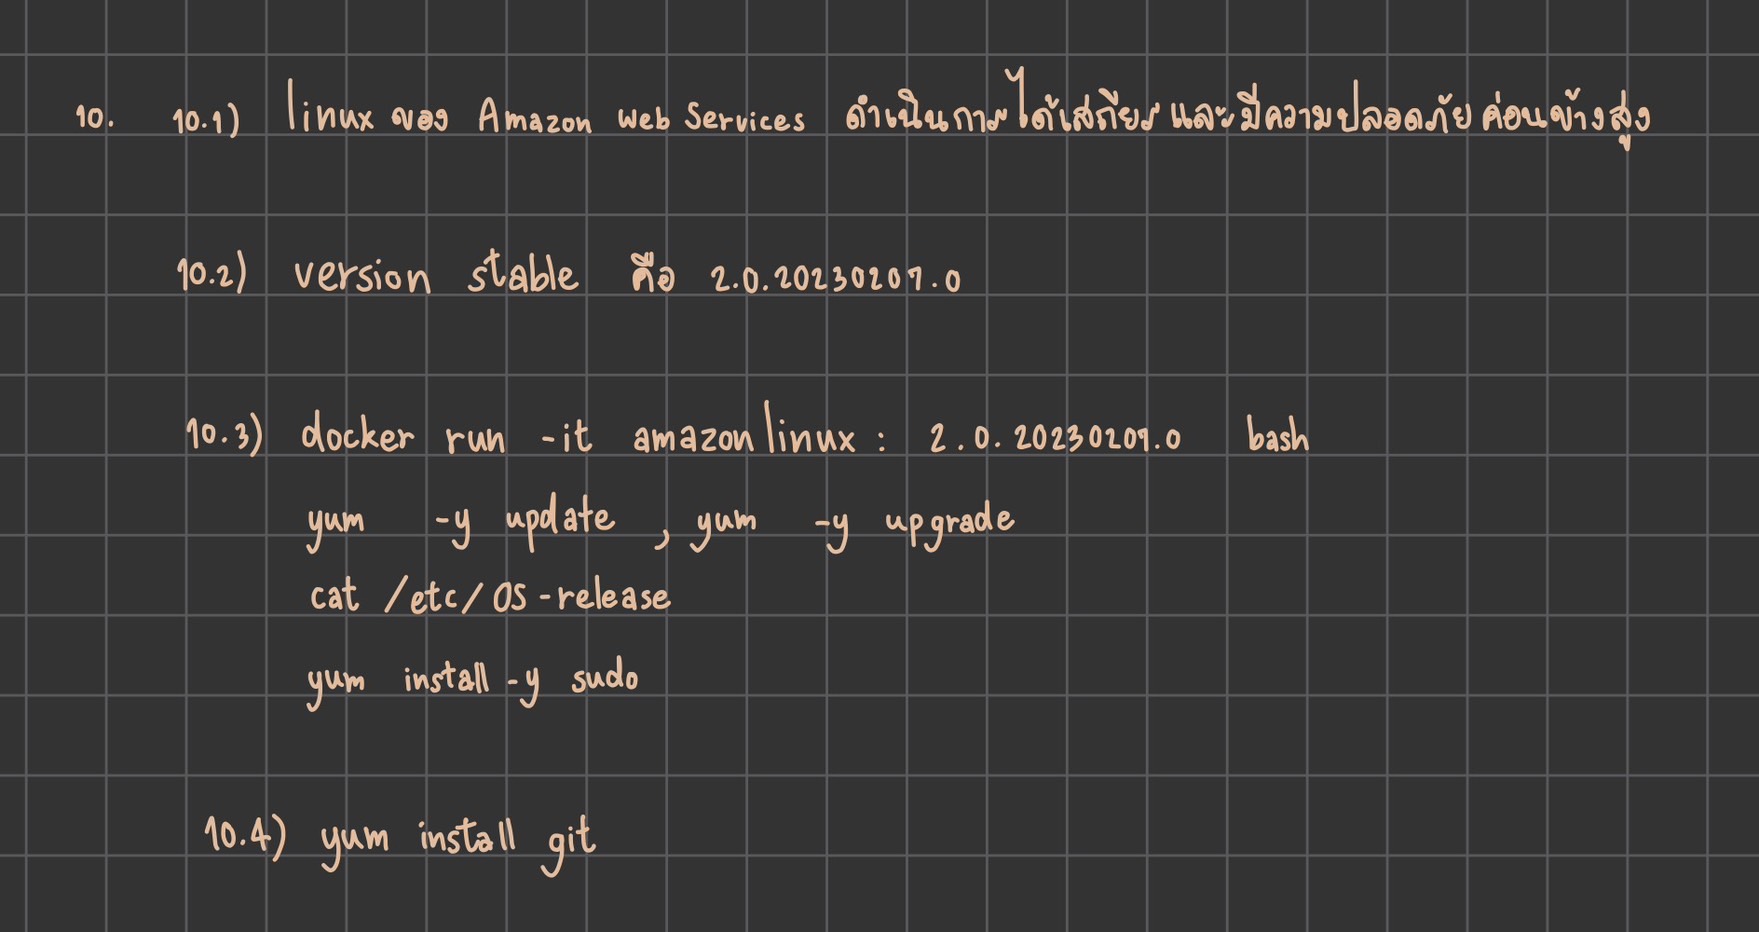 10. 10.1) linux ของ Amazon Web Services ดำเนินการได้เสถียร และมีความปลอดภัย ค่อนข้างสูง
10.2) version stable คือ 2.0.20230207.0
10.3) docker run -it amazonlinux : 2.0.20230207.0 bash
yum -y update , yum -y upgrade
cat /etc/os-release
yum install -y sudo
10.4) yum install git